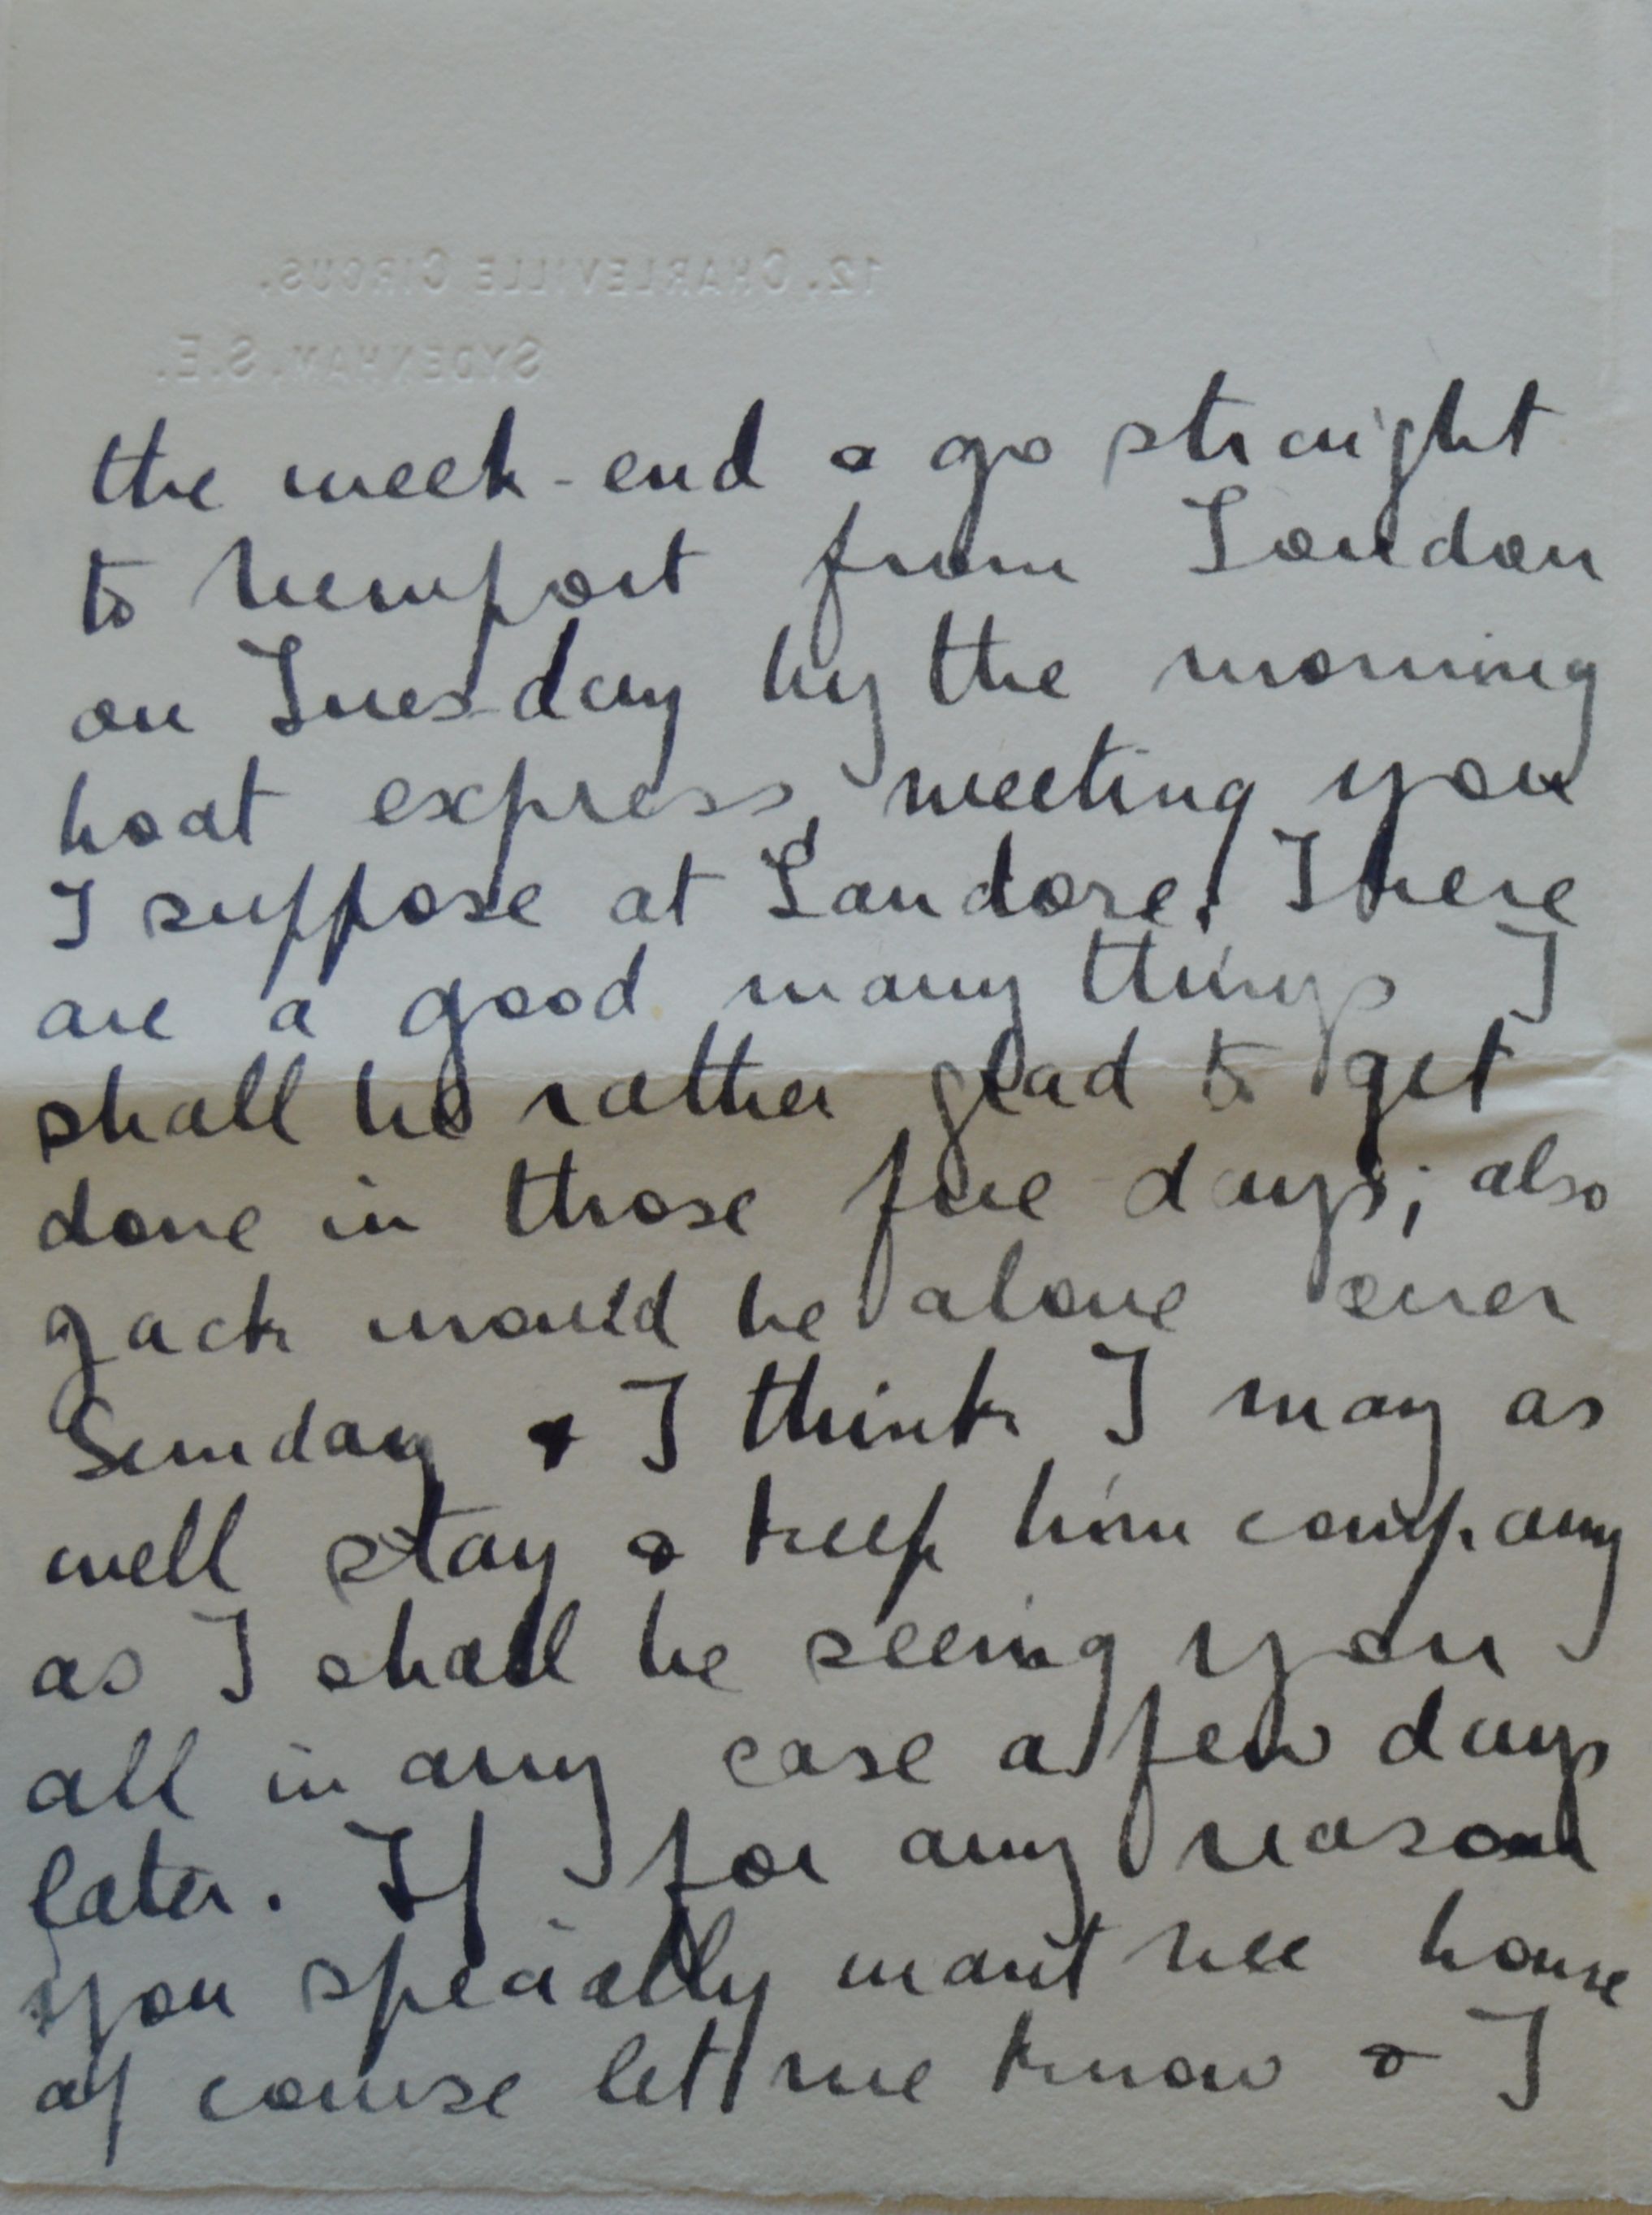 12, CHARLEVILLE CIRCUS.
SYDENHAM. S.E.
the week-end & go straight
to Newport from London
on Tuesday by the morning
boat express, meeting you
I suppose at Landore. There
are a good many things I
shall be rather glad to get
done in those five days; also
Jack would be alone over
Sunday & I think I may as
well stay & keep him company
as I shall be seeing you
all in any case a few days
later. If for any reason
you specially want me home
of course let me know & I